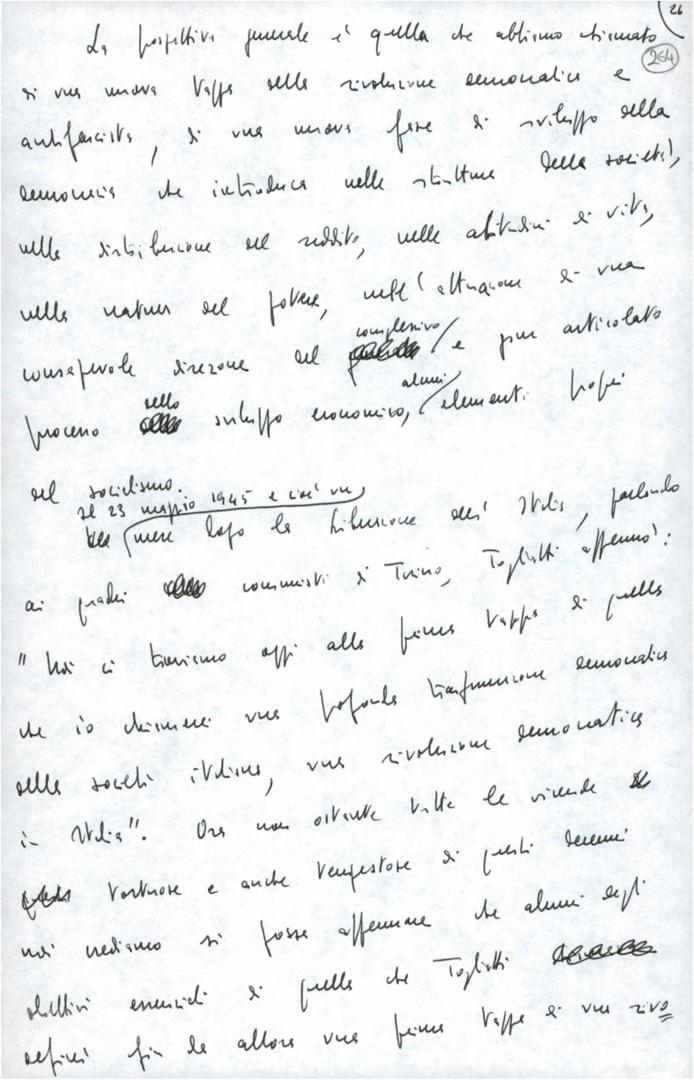 26
264
La prospettiva generale è quella che abbiamo chiamato
di una nuova tappa della rivoluzione democratica e
antifascista, di una nuova fase di sviluppo della
democrazia che introduca nelle strutture della società,
nella distribuzione del reddito, nelle abitudini di vita,
nella natura del potere, nell'attuazione di una
consapevole direzione del complessivo e pur articolato
processo dello sviluppo economico, alcuni elementi propri
del socialismo.
Il 23 maggio 1945 e cioè un
mese dopo la liberazione dell'Italia, parlando
ai quadri comunisti di Torino, Togliatti affermò:
"Noi ci troviamo oggi alla prima tappa di quella
che io chiamerei una profonda trasformazione democratica
della società italiana, una rivoluzione democratica
in Italia". Ora non ostante tutte le vicende
tortuose e anche tempestose di questi decenni
noi crediamo si possa affermare che alcuni degli
obiettivi essenziali di quella che Togliatti
definì fin da allora una prima tappa di una rivo